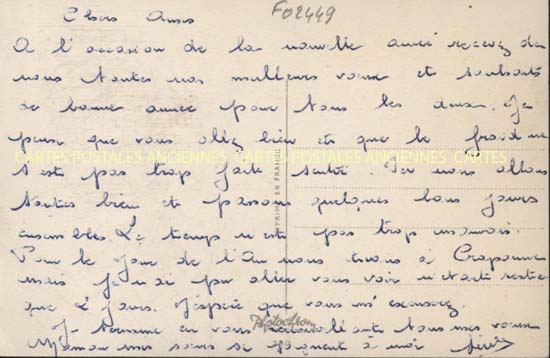 Chers Amis F02449
A l'occasion de la nouvelle année recevez de
nous toutes nos meilleurs voeux et souhaits
de bonne année pour tous les deux. Je
pense que vous allez bien et que le froid ne
s'est pas trop fait sentir. Ici nous allons
CARTES POSTALES ANCIENNES CARTES POSTALES ANCIENNES CARTES
toutes bien et passons quelques bons jours
ensembles. Le temps n'est pas trop mauvais.
IMPRIMÉ EN FRANCE
Pour le jour de l'An nous étions à Craponne
mais je n'ai pu aller vous voir n'étant restée
que 2 jours. J'espère que vous m'excuserez.
Photochrom
Je termine en vous tous mes voeux
Maman mes soeurs se joignent à moi